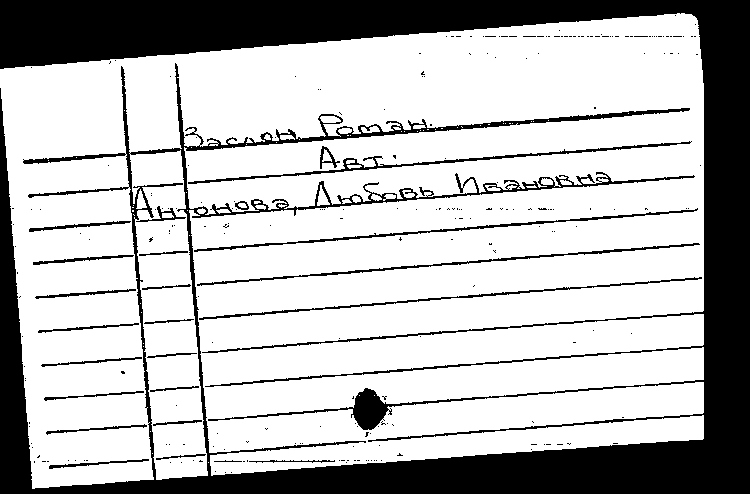 Заслон. Роман.
Авт.
Антонова, Любовь Ивановна